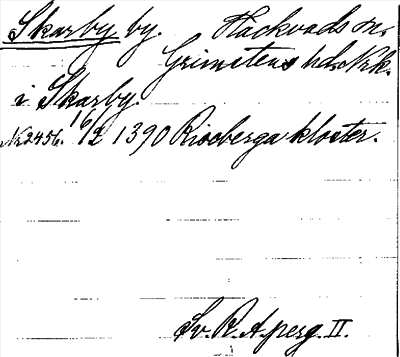 Skarby by. Hackvads sn.
Grimstens hd. Nrk.
i Skarby.
Nr 2456. 16/2 1390 Riseberga kloster.
Sv. R. A. perg. II.